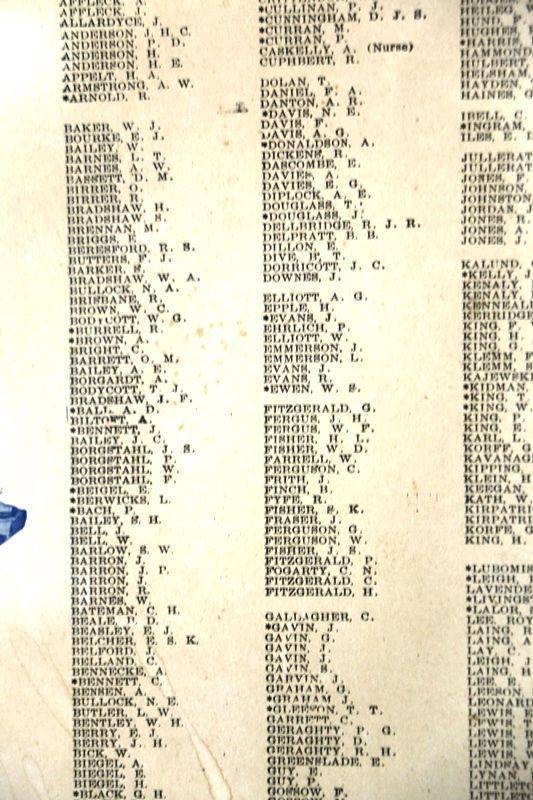 AFFLECK, J.
ALLARDYCE, J.
ANDERSON, J. H. C.
ANDERSON, P. D.
ANDERSON, H.
ANDERSON, H. E.
APPELT, H. A.
ARMSTRONG, A. W.
*ARNOLD, R.
BAKER, W. J.
BOURKE, E. J.
BAILEY, W.
BARNES, L. T.
BARNES, A. W.
BASSETT, D. M.
BIRRER, O.
BIRRER, R.
BRADSHAW, H.
BRADSHAW, S.
BRENNAN, M.
BRIGGS, E.
BERESFORD, R. S.
BUTTERS, F. J.
BARKER, S.
BRADSHAW, W. A.
BULLOCK, N. A.
BRISBANE, R.
BROWN, W. C.
BODYCOTT, W. G.
*BURRELL, R.
*BROWN, A.
BRIGHT, C.
BARRETT, O. M.
BAILEY, A. E.
BORGARDT, A.
BODYCOTT, T. J.
BRADSHAW, J. F.
*BALL, A. D.
BILTOFT, A.
*BENNETT, J.
BAILEY, J. C.
BORGSTAHL, J. S.
BORGSTAHL, P.
BORGSTAHL, W.
BORGSTAHL, F.
*BEIGEL, E.
*BERWICKS, L.
*BACH, P.
BAILEY, S. H.
BELL, J.
BELL, W.
BARLOW, S. W.
BARRON, J.
BARRON, J. P.
BARRON, J.
BARRON, R.
BARNES, W.
BATEMAN, C. H.
BEALE, F. D.
BEASLEY, E. J.
BELCHER, E. S. K.
BELFORD, J.
BELLAND, C.
BENNECKE, A.
*BENNETT, C.
BENSEN, A.
BULLOCK, N. E.
BUTLER, L. W.
BENTLEY, W. H.
BERRY, E. J.
BERRY, J. H.
BICK, W.
BIEGEL, A.
BIEGEL, E.
BIEGEL, H.
*BLACK, G. H.
CULLINAN, P. J.
*CUNNINGHAM, D. J. S.
*CURRAN, M.
*CURRAN, V.
CASKELLY, A. (Nurse)
CUPHBERT, R.
DOLAN, T.
DANIEL, F. A.
DANTON, A. R.
*DAVIS, N. E.
DAVIS, F.
DAVIS, A. G.
*DONALDSON, A.
DICKENS, R.
DASCOMBE, E.
DAVIES, A.
DAVIES, E. G.
DIPLOCK, A. E.
DOUGLASS, T.
*DOUGLASS, J.
DELLBRIDGE, R. J. R.
DELPRATT, B. B.
DILLON, E.
DIVE, B. T.
DORRICOTT, J. C.
DOWNES, J.
ELLIOTT, A. G.
EPPLE, H.
*EVANS, J.
EHRLICH, P.
ELLIOTT, W.
EMMERSON, J.
EMMERSON, L.
EVANS, J.
EVANS, R.
*EWEN, W. S.
FITZGERALD, G.
FERGUS, J. H.
FERGUS, W. F.
FISHER, H. L.
FISHER, W. D.
FARRELL, W.
FERGUSON, C.
FRITH, J.
FINCH, B.
FYFE, R.
FISHER, S. K.
FRASER, J.
FERGUSON, G.
FERGUSON, W.
FISHER, J. S.
FITZGERALD, P.
FOGARTY, C. N.
FITZGERALD, C.
FITZGERALD, H.
GALLAGHER, C.
*GAVIN, J.
GAVIN, G.
GAVIN, J.
GAVIN, J.
GAVIN, S.
GARVIN, J.
GRAHAM, G.
*GRAHAM, J.
*GLEESON, T. T.
GARRETT, C.
GERAGHTY, P. G.
GERAGHTY, D.
GERAGHTY, R. H.
GREENSLADE, E.
GUY, E.
GUY, P.
GOSSOW, F.
HEILEG,
HUND,
HUGHES,
*HARRIS
HAMMOND
HULBERT
HELSHAM,
HAYDEN,
HAINES, G
IBELL, C.
*INGRAM,
ILES, E.
JULLERAT
JULLERAT
JONES, F.
JOHNSON,
JOHNSTON
JORDAN, J
JONES, R.
JONES, A.
JONES, J.
KALUND,
*KELLY, J
KENALY,
KENALY,
KENNEALL
KERRIDGE
KING, F.
KING, H.
KING, C.
KLEMM, F
KLEMM, S
KAJEWSKI
*KIDMAN,
*KING, T.
*KING, W.
KING, P.
KING, E.
KARL, L.
KORFF, G
KAVANAG
KIPPING,
KLEIN, H
KEEGAN,
KATH, W.
KIRPATRI
KIRPATRI
KORFE, G
KING, H.
*LUBOMIS
*LEIGH,
LAVENDE
*LIVINGS
*LALOR,
LEE, ROY
LAING, R
LAING, A
LAY, C.
LEIGH, J
LAING, H
LEE, E.
LEESON,
LEONARD
LEWIS, E
LEWIS,
LEWIS,
LEWIS,
LEWIS, F
LINDSAY
LYNAN,
LITTLETO
LITTLETO